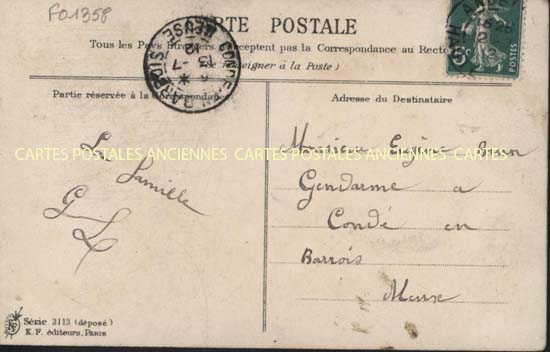 FO1358
CARTE POSTALE
Tous les Pays Etrangers n'acceptent pas la Correspondance au Recto
(Se renseigner à la Poste)
CONDÉ-EN-BARROIS
MEUSE
Partie réservée à la Correspondance
Adresse du Destinataire
CARTES POSTALES ANCIENNES CARTES POSTALES ANCIENNES CARTES
La Famille
G L
Monsieur Eugène
Gendarme a
Condé en
Barrois
Meuse
Série 3113 (déposé)
K. F. éditeurs, Paris